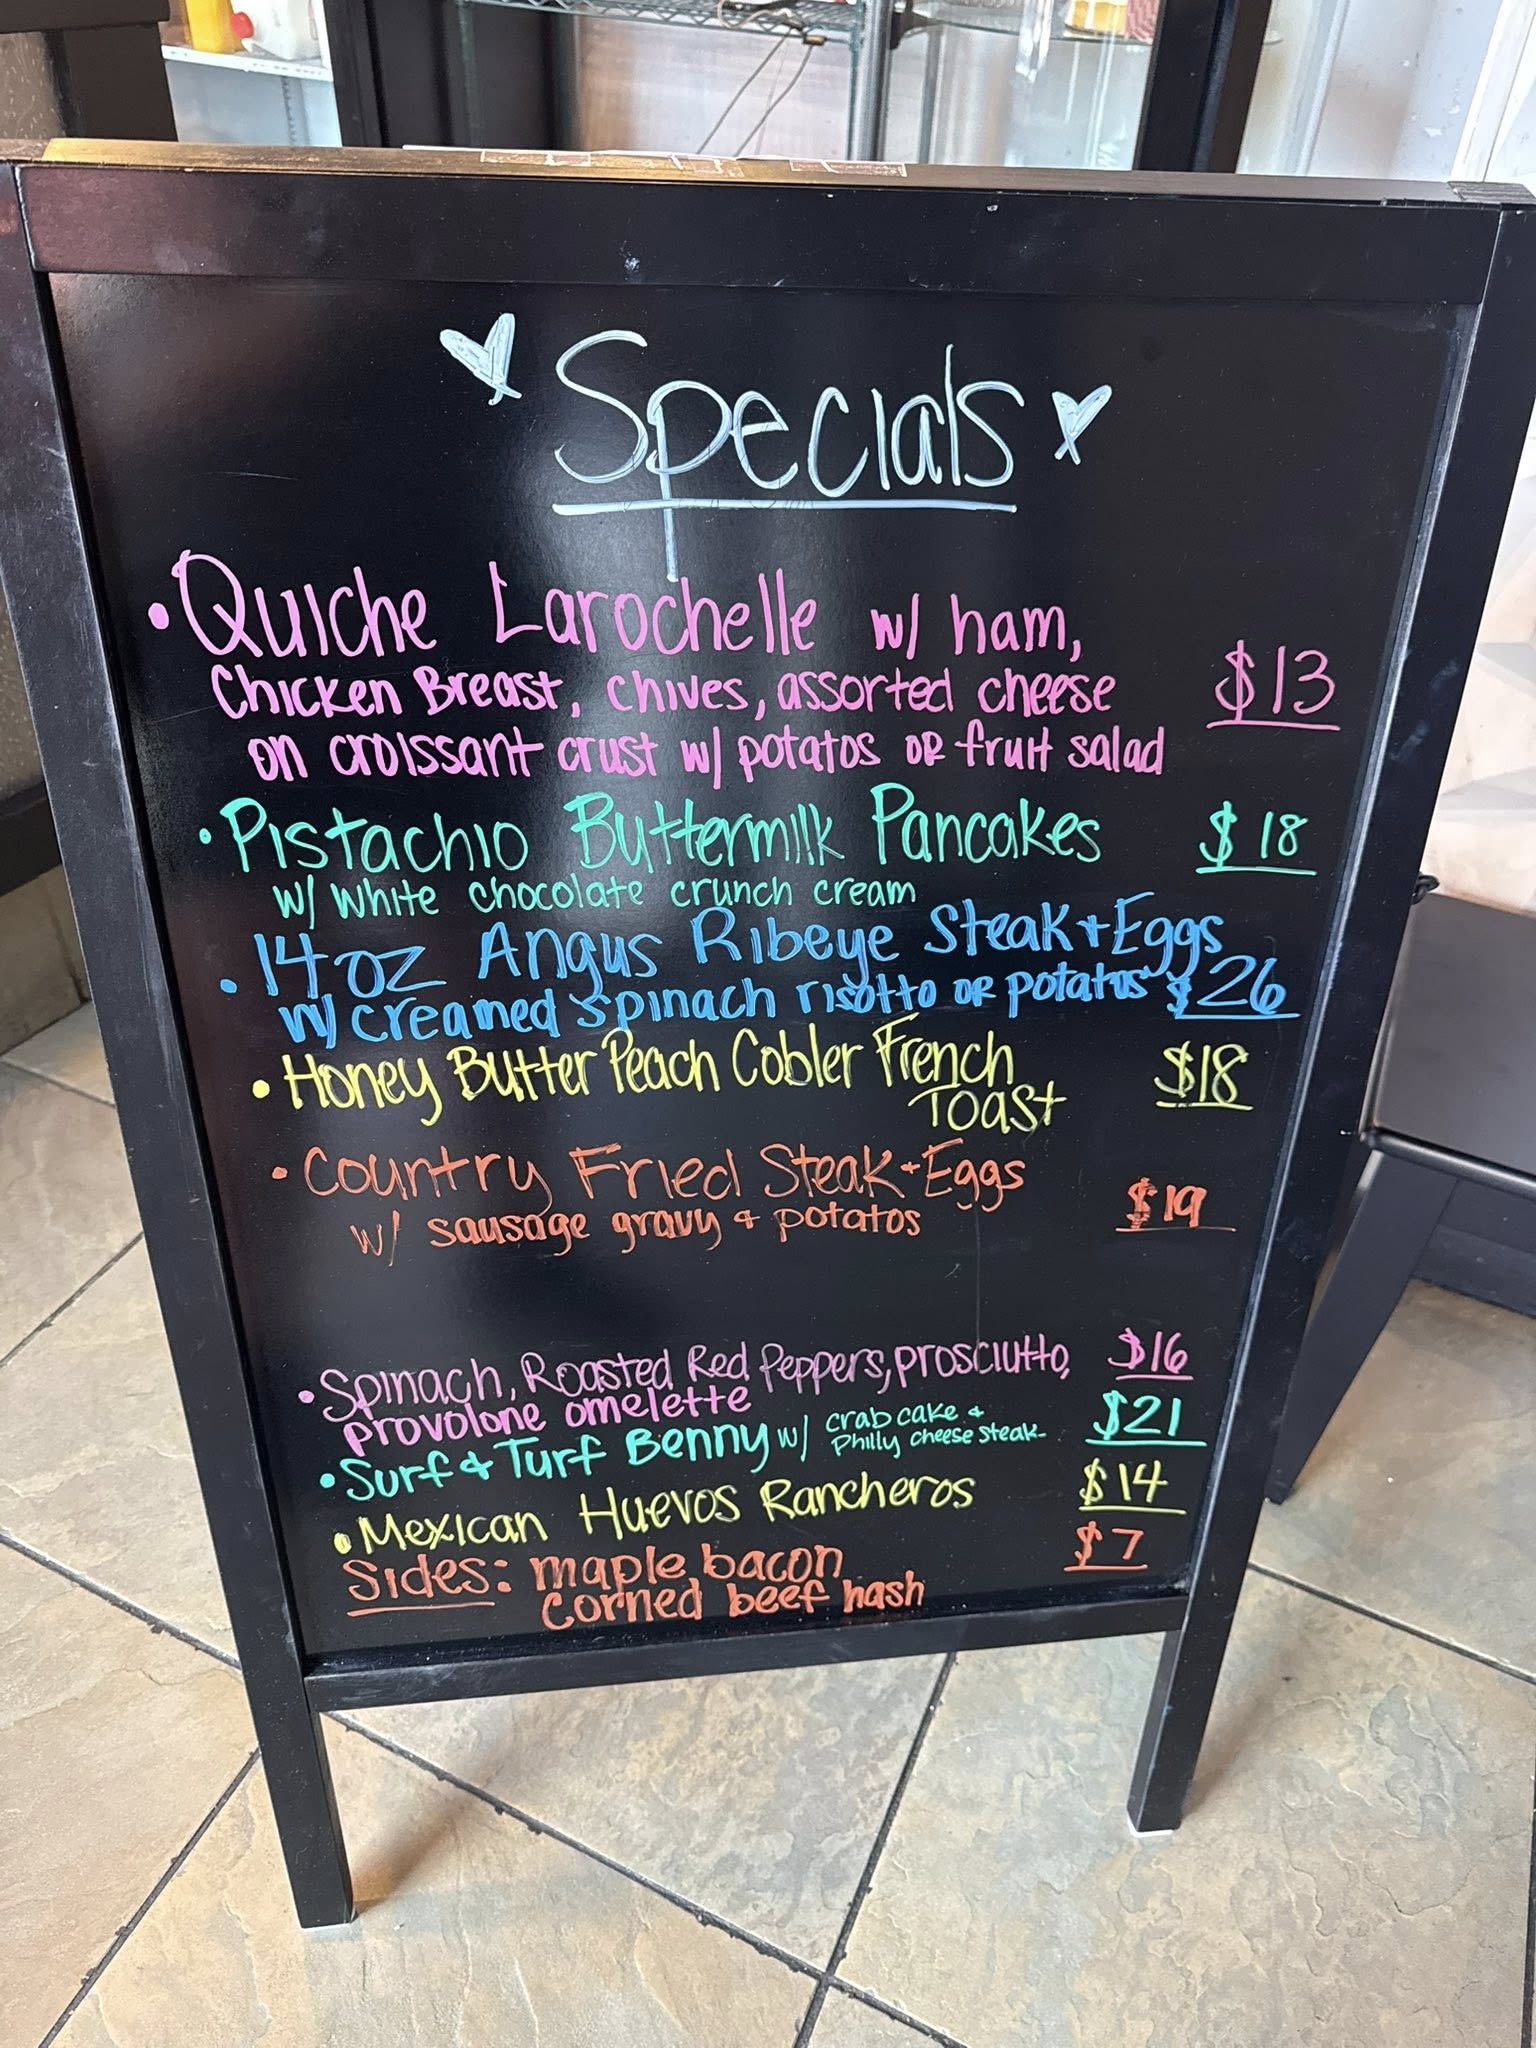 Specials
• Quiche Larochelle w/ ham,
Chicken Breast, chives, assorted cheese
on croissant crust w/ potatos or fruit salad
$13
• Pistachio Buttermilk Pancakes
w/ white chocolate crunch cream
$18
• 14 oz Angus Ribeye Steak + Eggs
w/ creamed spinach risotto or potatos
$26
• Honey Butter Peach Cobler French
Toast
$18
• Country Fried Steak + Eggs
w/ sausage gravy & potatos
$19
• Spinach, Roasted Red Peppers, prosciutto,
provolone omelette
$16
• Surf & Turf Benny w/ crab cake &
Philly cheese steak
$21
• Mexican Huevos Rancheros
$14
Sides: maple bacon
corned beef hash
$7